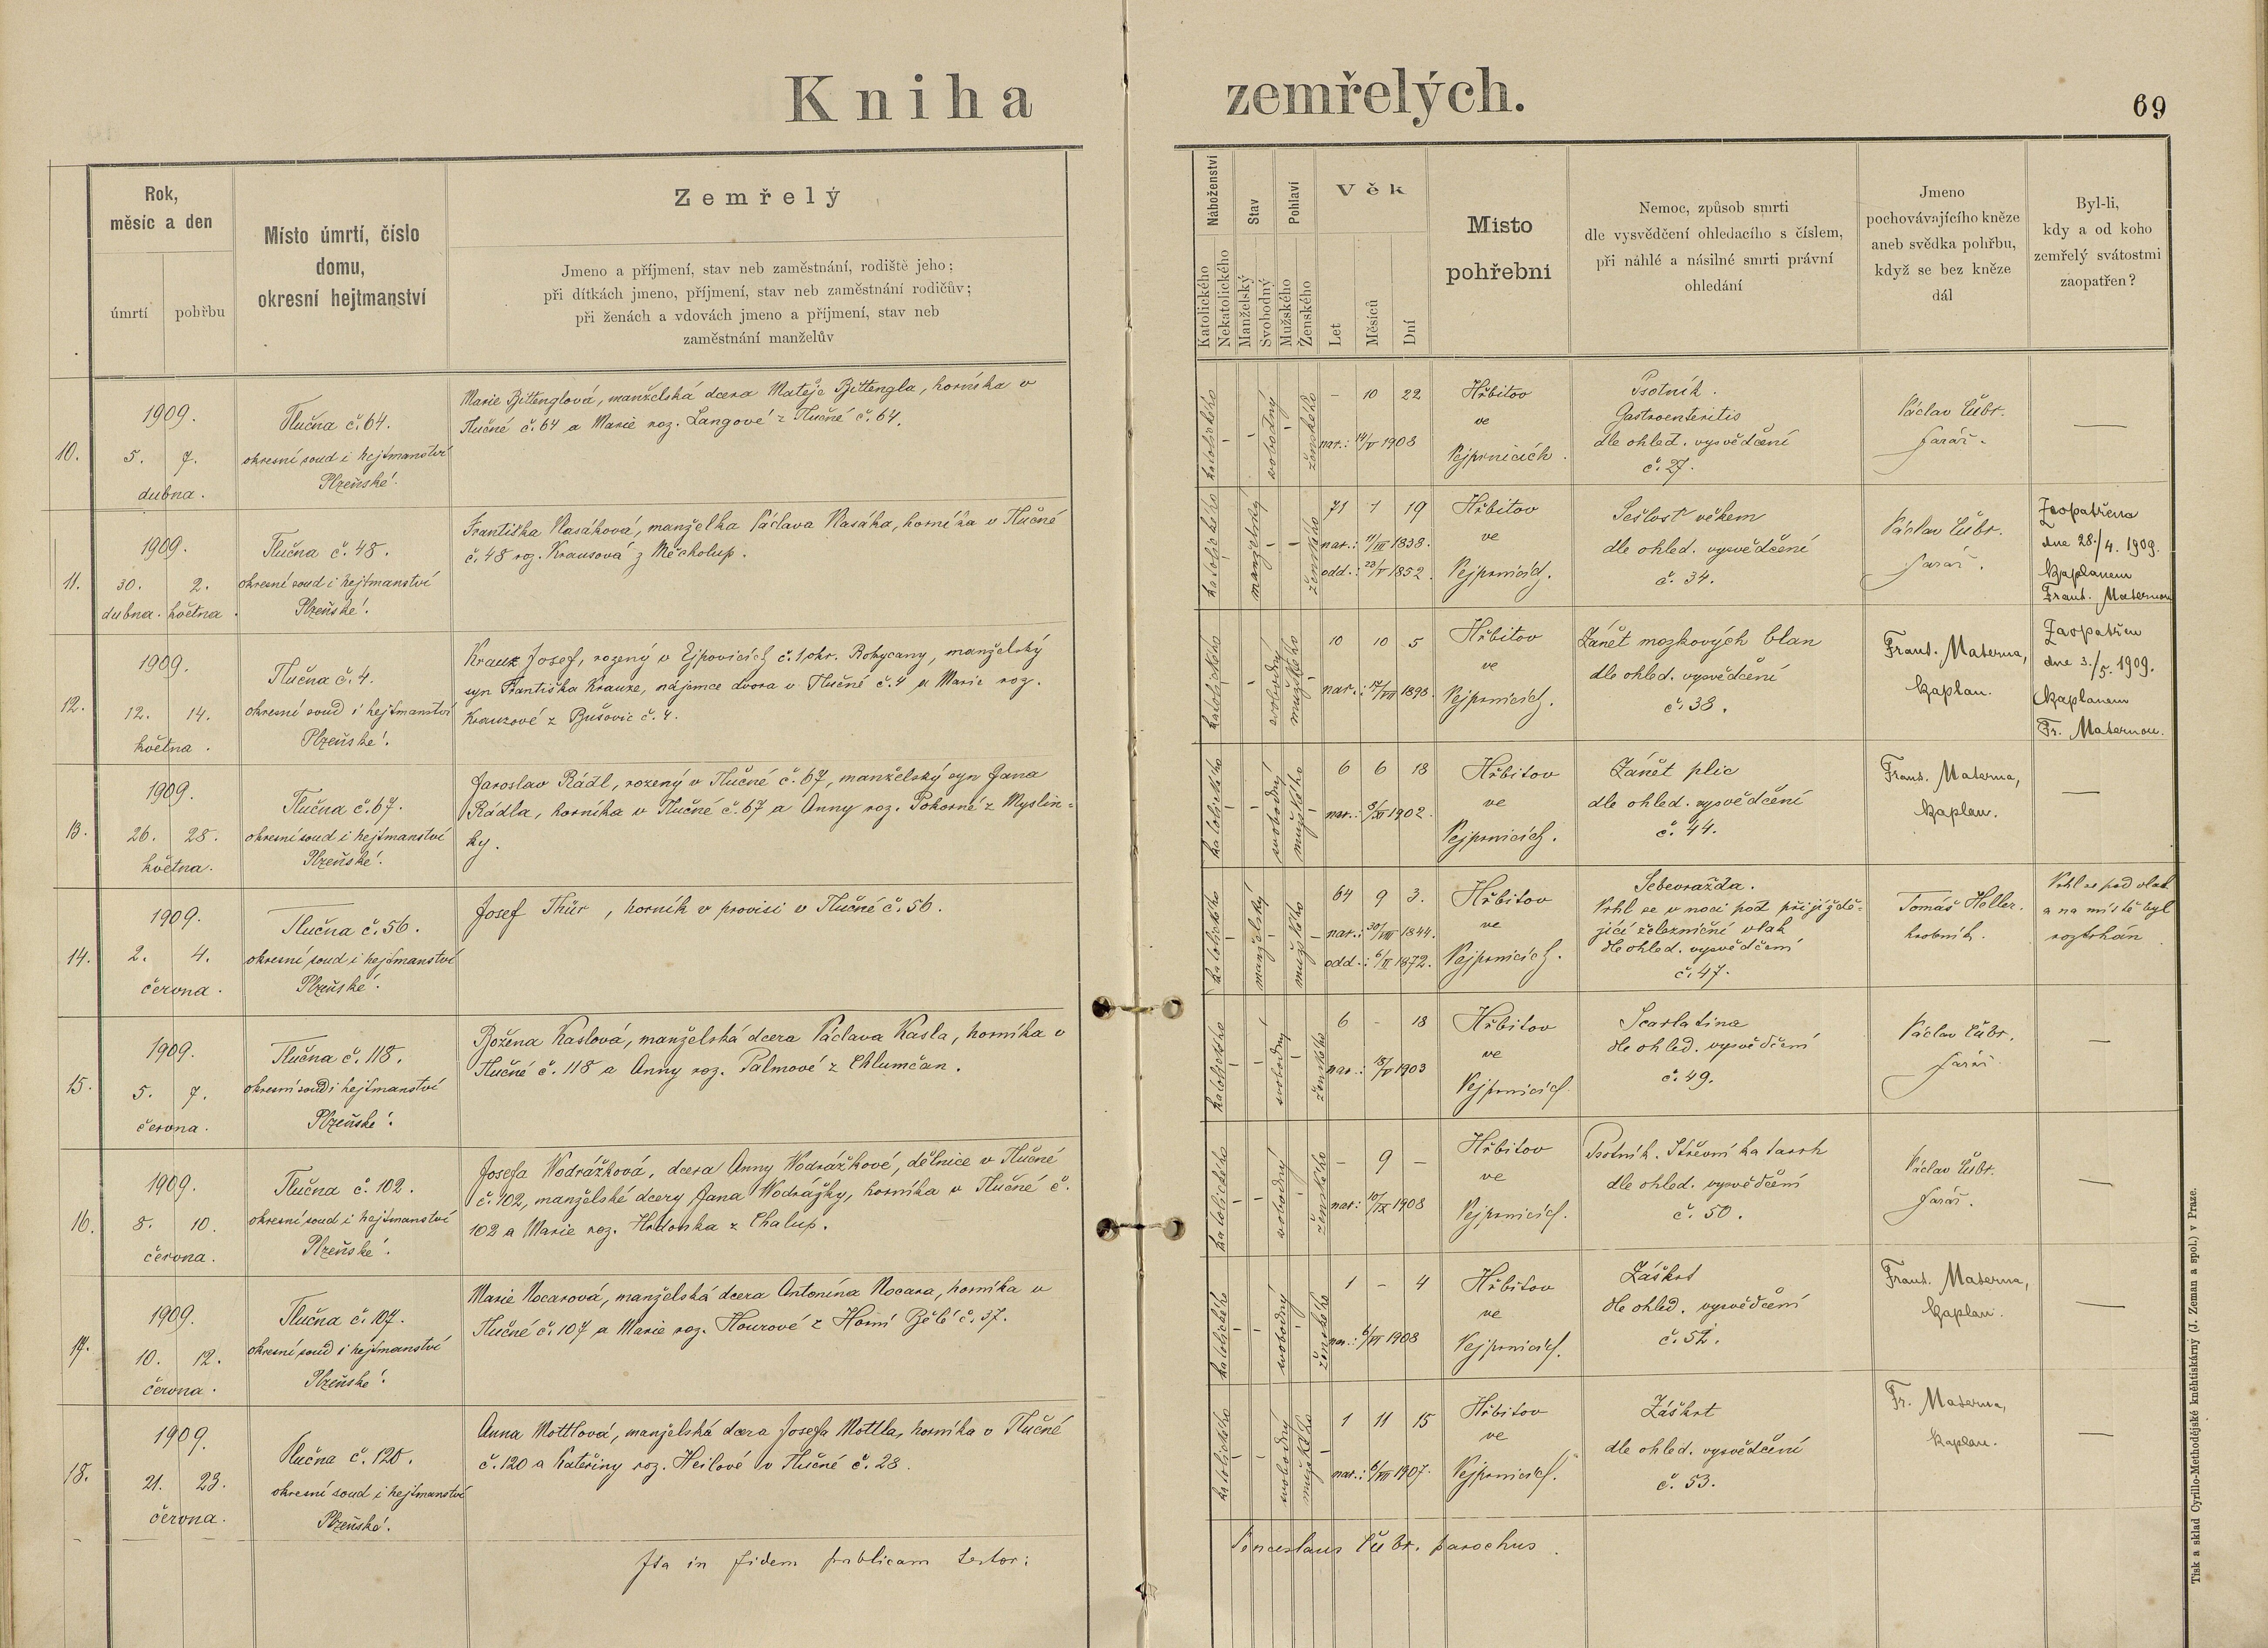 Kniha zemřelých.
69
Rok,
měsíc a den
úmrtí
pohřbu
Místo úmrtí, číslo
domu,
okresní hejtmanství
Zemřelý
Jmeno a příjmení, stav neb zaměstnání, rodiště jeho;
při dítkách jmeno, příjmení, stav neb zaměstnání rodičův;
při ženách a vdovách jmeno a příjmení, stav neb
zaměstnání manželův
Náboženství
Katolického
Nekatolického
Stav
Manželský
Svobodný
Pohlaví
Mužského
Ženského
Věk
Let
Měsíců
Dní
Místo
pohřební
Nemoc, způsob smrti
dle vysvědčení ohledacího s číslem,
při náhlé a násilné smrti právní
ohledání
Jmeno
pochovávajícího kněze
aneb svědka pohřbu,
když se bez kněze
dál
Byl-li,
kdy a od koho
zemřelý svátostmi
zaopatřen?
10.
1909.
5. 7.
dubna.
Tlučna č. 64.
okresní soud i hejtmanství
Plzeňské.
Marie Bittenglová, manželská dcera Matěje Bittengla, horníka v
Tlučné č. 64 a Marie roz. Langové z Tlučné č. 64.
katolického
svobodný
ženského
- 10 22
nar.: 14/V 1908
Hřbitov
ve
Vejprnicích.
Psotník.
Gastroenteritis
dle ohled. vysvědčení
č. 27.
Václav Čubr.
farář.
—
11.
1909.
30. 2.
dubna. května.
Tlučna č. 48.
okresní soud i hejtmanství
Plzeňské.
Františka Klasáková, manželka Václava Klasáka, horníka v Tlučné
č. 48 roz. Krausová z Měcholup.
katolického
manželský
ženského
71 1 19
nar.: 11/III 1838.
odd.: 23/V 1852.
Hřbitov
ve
Vejprnicích.
Sešlost věkem
dle ohled. vysvědčení
č. 34.
Václav Čubr.
farář.
Zaopatřena
dne 28./4. 1909.
kaplanem
Frant. Maternou
12.
1909.
12. 14.
května.
Tlučna č. 4.
okresní soud i hejtmanství
Plzeňské.
Krauz Josef, rozený v Ejpovicích č. 1, okr. Rokycany, manželský
syn Františka Krauze, nájemce dvora v Tlučné č. 4 a Marie roz.
Krauzové z Bušovic č. 4.
katolického
svobodný
mužského
10 10 5
nar.: 17/VII 1898.
Hřbitov
ve
Vejprnicích.
Zánět mozkových blan
dle ohled. vysvědčení
č. 38.
Frant. Materna,
kaplan.
Zaopatřen
dne 3./5. 1909.
kaplanem
Fr. Maternou.
13.
1909.
26. 28.
května.
Tlučna č. 67.
okresní soud i hejtmanství
Plzeňské.
Jaroslav Rádl, rozený v Tlučné č. 67, manželský syn Jana
Rádla, horníka v Tlučné č. 67 a Anny roz. Pokorné z Myslin=
ky.
katolického
svobodný
mužského
6 6 18
nar.: 8/XI 1902.
Hřbitov
ve
Vejprnicích.
Zánět plic
dle ohled. vysvědčení
č. 44.
Frant. Materna,
kaplan.
—
14.
1909.
2. 4.
června.
Tlučna č. 56.
okresní soud i hejtmanství
Plzeňské.
Josef Thür, horník v provisi v Tlučné č. 56.
katolického
manželský
mužského
64 9 3.
nar.: 30/VIII 1844.
odd.: 6/II 1872.
Hřbitov
ve
Vejprnicích.
Sebevražda.
Vrhl se v noci pod přijíždě=
jící železniční vlak
dle ohled. vysvědčení
č. 47.
Tomáš Heller.
hrobník.
Vrhl se pod vlak
a na místě byl
roztrhán
15.
1909.
5. 7.
června.
Tlučna č. 118.
okresní soud i hejtmanství
Plzeňské.
Božena Kaslová, manželská dcera Václava Kasla, horníka v
Tlučné č. 118 a Anny roz. Palmové z Chlumčan.
katolického
svobodný
ženského
6 - 18
nar.: 18/V 1903
Hřbitov
ve
Vejprnicích.
Scarlatina
dle ohled. vysvědčení
č. 49.
Václav Čubr.
farář
—
16.
1909.
8. 10.
června.
Tlučna č. 102.
okresní soud i hejtmanství
Plzeňské.
Josefa Vodrážková, dcera Anny Vodrážkové, dělnice v Tlučné
č. 102, manželské dcery Jana Vodrážky, horníka v Tlučné č.
102 a Marie roz. z Chalup.
katolického
svobodný
ženského
- 9 -
nar.: 10/IX 1908
Hřbitov
ve
Vejprnicích.
Psotník. Střevní katarrh
dle ohled. vysvědčení
č. 50.
Václav Čubr.
farář.
—
17.
1909.
10. 12.
června.
Tlučna č. 107.
okresní soud i hejtmanství
Plzeňské.
Marie Nocarová, manželská dcera Antonína Nocara, horníka v
Tlučné č. 107 a Marie roz. Flourové z Horní Bělé č. 37.
katolického
svobodný
ženského
1 - 4
nar.: 6/VI 1908
Hřbitov
ve
Vejprnicích.
Záškrt
dle ohled. vysvědčení
č. 52.
Frant. Materna,
kaplan.
—
18.
1909.
21. 23.
června.
Tlučna č. 120.
okresní soud i hejtmanství
Plzeňské.
Anna Mottlová, manželská dcera Josefa Mottla, horníka v Tlučné
č. 120 a Kateřiny roz. Heilové v Tlučné č. 28.
katolického
svobodný
mužského
1 11 15
nar.: 6/VII 1907.
Hřbitov
ve
Vejprnicích.
Záškrt
dle ohled. vysvědčení
č. 53.
Fr. Materna,
kaplan.
—
Ita in fidem publicam testor:
Venceslaus Čubr. parochus.
Tisk a sklad Cyrillo-Methodějské kněhtiskárny (J. Zeman a spol.) v Praze.